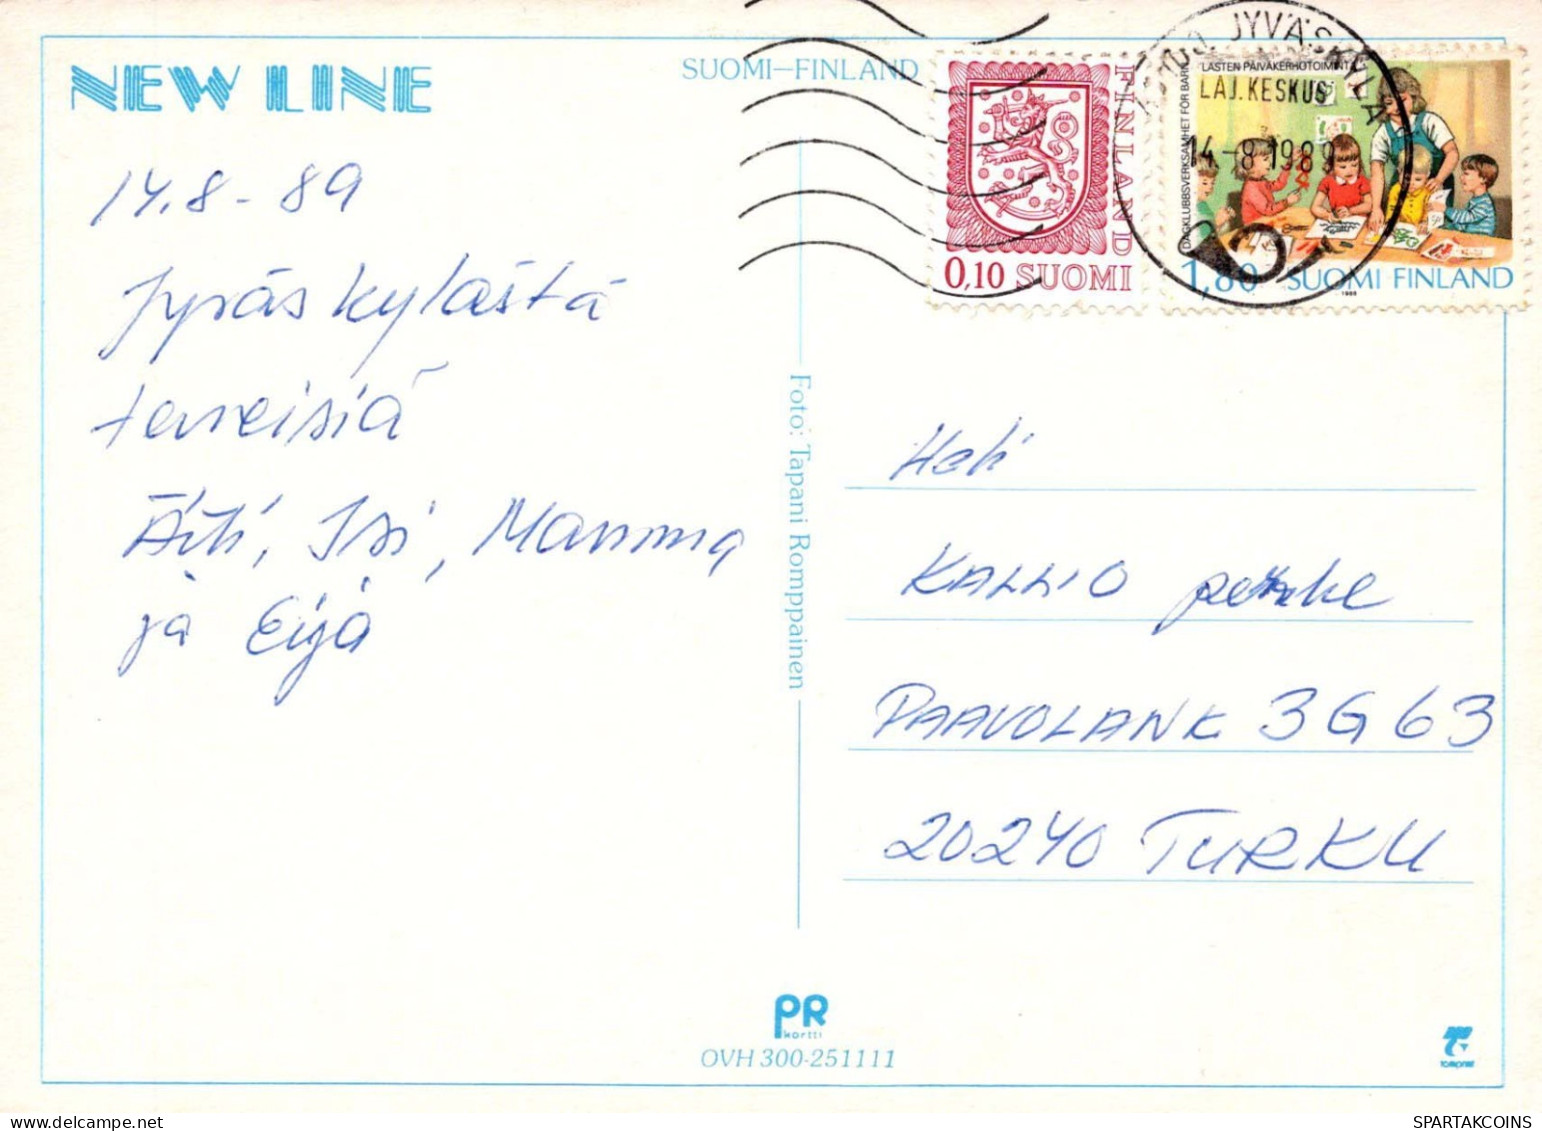 NEW LINE
SUOMI–FINLAND
FINLAND
0,10 SUOMI
JYVÄSKYLÄ
LAJ.KESKUS
14-8.1989
LASTEN PÄIVÄKERHOTOIMINTA
DAGKLUBBSVERKSAMHET FÖR BARN
1,80 SUOMI FINLAND
1988
14.8-89
Jyväskylästä
terveisiä
Äiti, Isi, Mamma
ja Eija
Foto: Tapani Romppainen
Heli
KALLIO
PAAVOLANK 3 G 63
20240 TURKU
PR
kortti
OVH 300-251111
SPARTAKCOINS